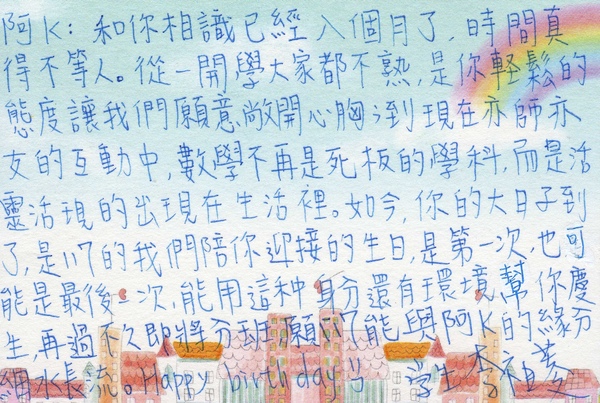 阿K：和你相識已經八個月了，時間真
得不等人。從一開學大家都不熟，是你輕鬆的
態度讓我們願意敞開心胸；到現在亦師亦
友的互動中，數學不再是死板的學科，而是活
靈活現的出現在生活裡。如今，你的大日子到
了，是117的我們陪你迎接的生日，是第一次，也可
能是最後一次，能用這种身分還有環境幫你慶
生，再過不久即將分班，願117能與阿K的緣分
細水長流。Happy birthday!! 學生 李祖菱